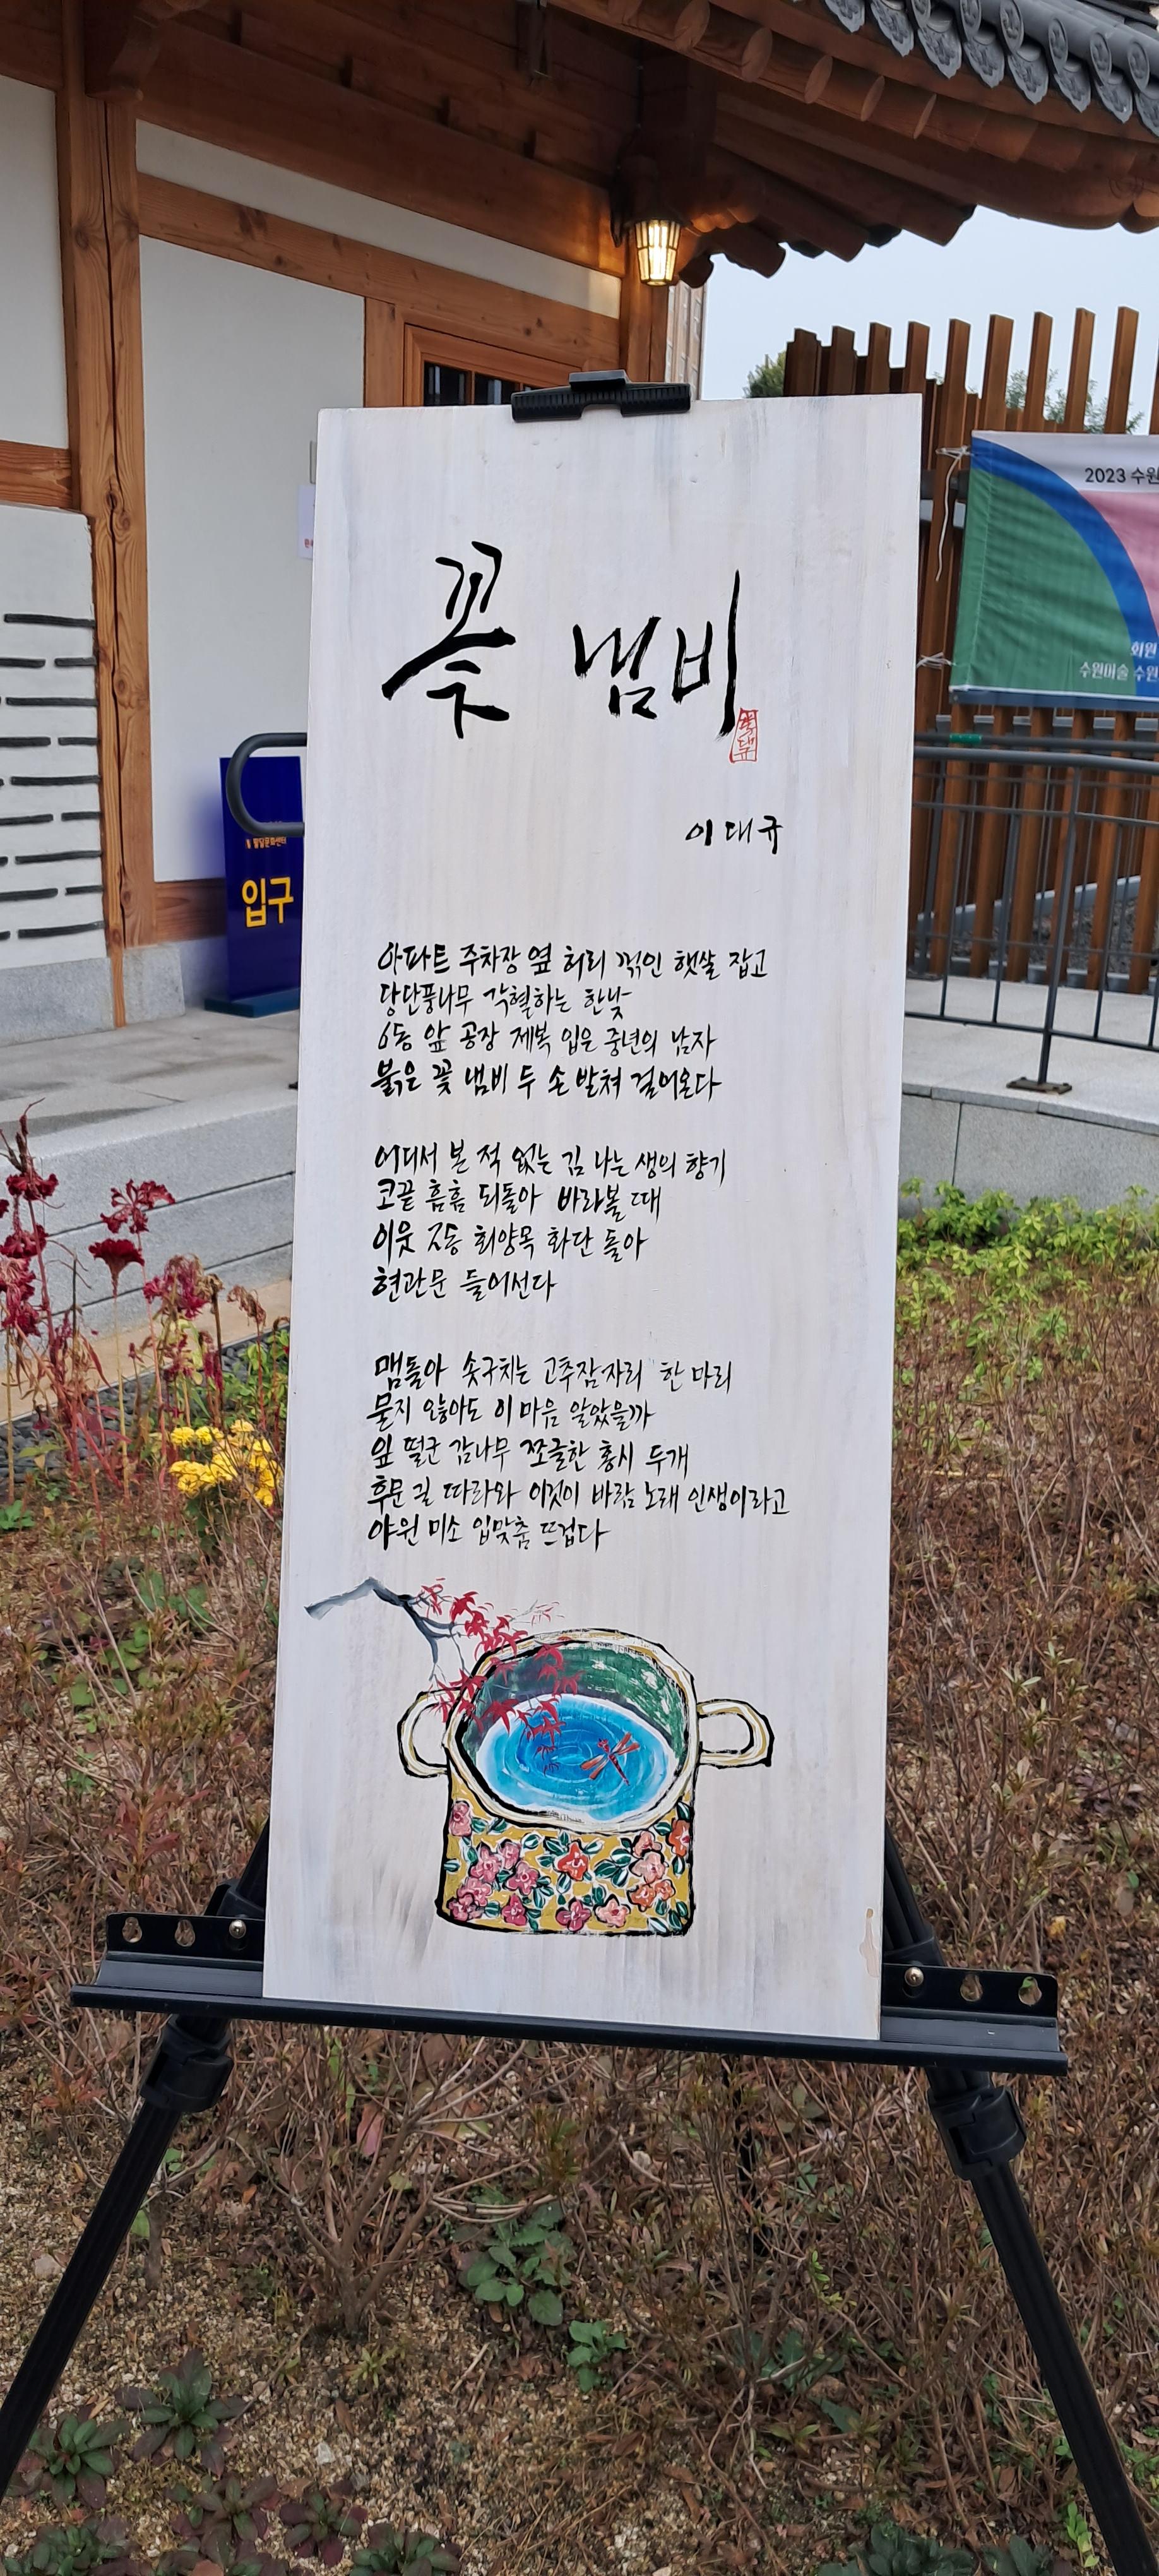 꽃 냄비
이대규
아파트 주차장 옆 허리 꺾인 햇살 잡고
당단풍나무 각혈하는 한낮
6동 앞 공장 제복 입은 중년의 남자
붉은 꽃 냄비 두 손 받쳐 걸어온다
어디서 본 적 없는 김 나는 생의 향기
코끝 흠흠 되돌아 바라볼 때
이웃 7동 회양목 화단 돌아
현관문 들어선다
맴돌아 솟구치는 고추잠자리 한 마리
묻지 않아도 이 마음 알았을까
잎 떨군 감나무 쪼글한 홍시 두개
후문 길 따라와 이것이 바람 노래 인생이라고
야윈 미소 입맞춤 뜨겁다
입구
2023 수원
회원
수원미술 수원